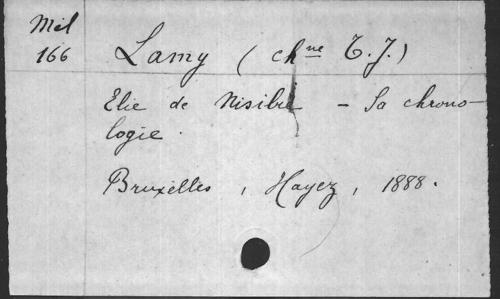 Mél
166
Lamy (chne T.J.)
Elie de Nisibe - Sa chrono-
logie.
Bruxelles, Hayez, 1888.